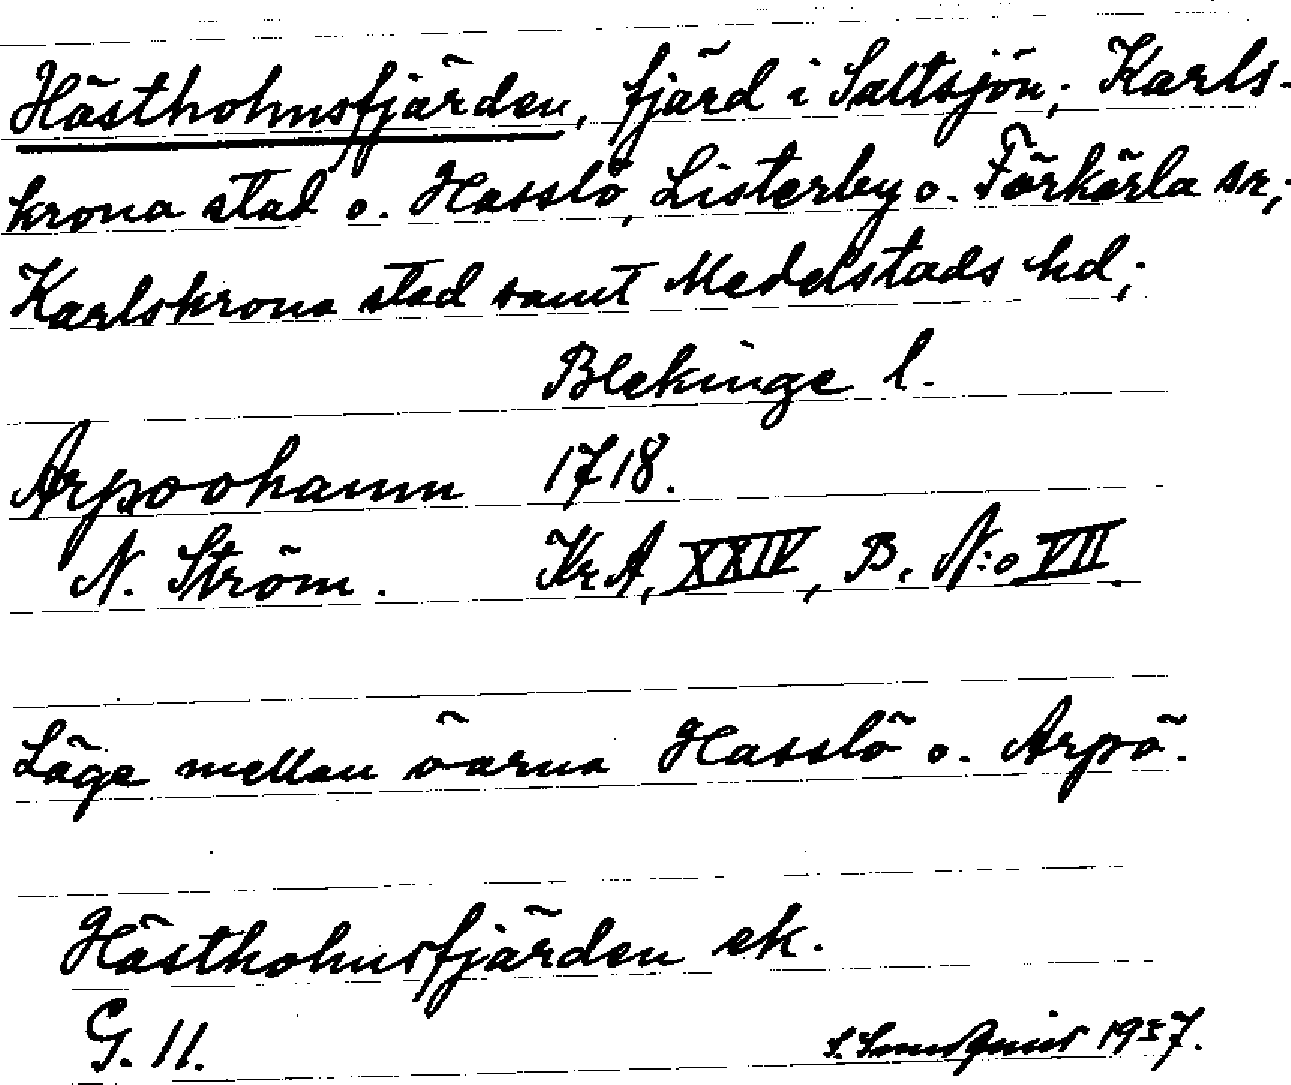 Hästholmsfjärden, fjärd i Saltsjön; Karls-
krona stad o. Hasslö, Listerby o. Förkärla sn;
Karlskrona stad samt Medelstads hd;
Blekinge l.
Arpoohamn 1718.
N. Ström. Kr.A, XXIV, B. N:o VII.
Läge mellan öarna Hasslö o. Arpö.
Hästholmsfjärden ek.
G. 11. 1937.